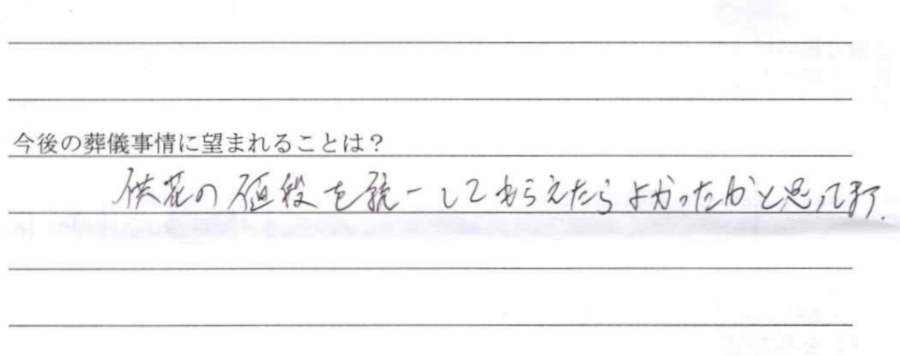 今後の葬儀事情に望まれることは？
供花の値段を統一してもらえたらよかったかと思ってます.